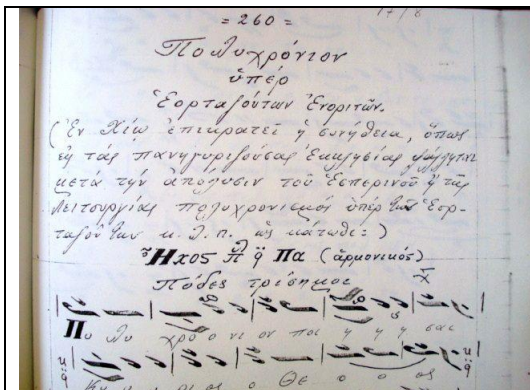 = 260 =
17/8
Πολυχρόνιον
ὑπέρ
Ἑορταζόντων Ἐνοριτῶν.
(Ἐν Χίῳ ἐπικρατεῖ ἡ συνήθεια, ὅπως
εἰς τάς πανηγυριζούσας Ἐκκλησίας ψάλλεται
μετά τήν ἀπόλυσιν τοῦ Ἑσπερινοῦ ἤ τῆς
Λειτουργίας πολυχρονισμός ὑπέρ τῶν Ἑορ-
ταζόντων κ.λ.π. ὡς κάτωθι:)
Ἦχος πλ Πα (ἁρμονικός)
Πόδες τρίσημος
Πο λυ χρο ο νι ον ποι η η η σαι
Κυ ρι ος ο Θε ο ο ος